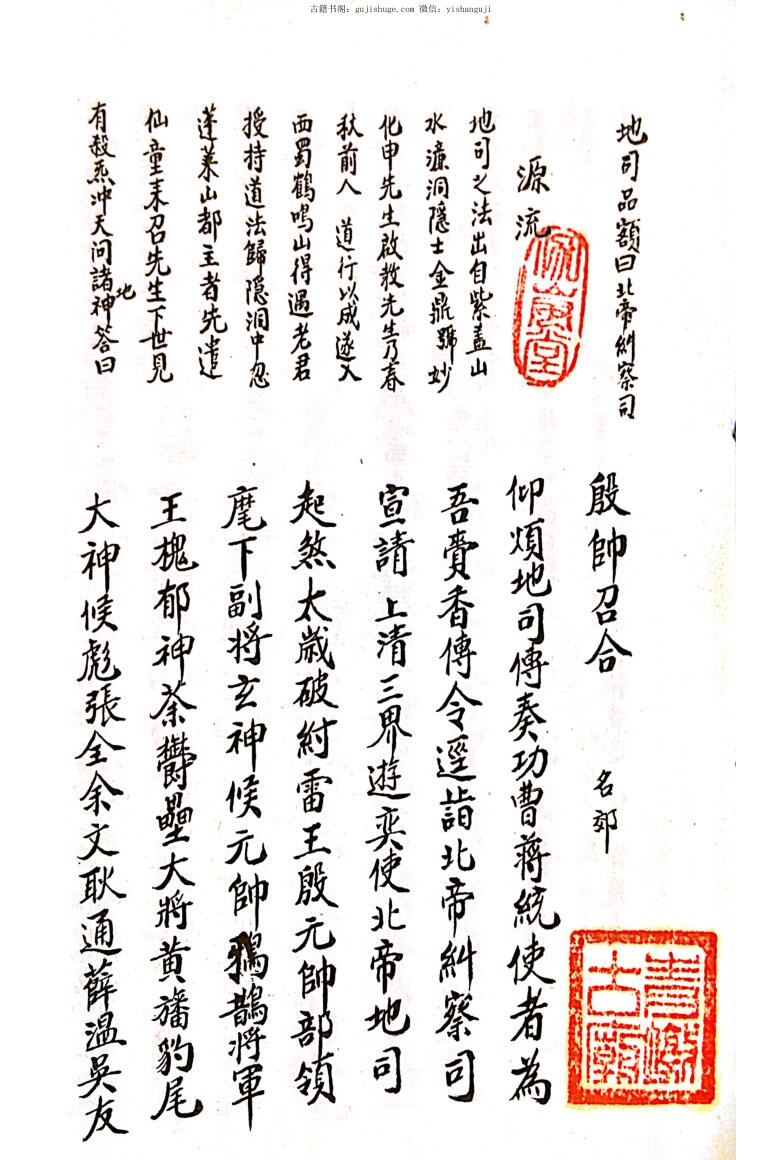 古籍书阁：gujishuge.com 微信：yishanguji
地司品额曰北帝糾察司
源流
地司之法出自紫盖山
水濂洞隱士金鼎號妙
化申先生啟教先生乃春
秋前人 道行以成遂入
西蜀鶴鳴山得遇老君
授持道法歸隐洞中忽
蓬莱山都主者先遣
仙童来召先生下世見
有殺炁冲天问諸地神答曰
殷帥召合 名郊
仰煩地司傳奏功曹蒋統使者為
吾賫香傳令逕詣北帝糾察司
宣請 上清三界遊奕使北帝地司
起煞太歲破紂雷王殷元帥部領
麾下副将玄神候元帥鴉鵲将軍
王槐郁神荼鬱壘大将黄旛豹尾
大神候彪張全余文耿通薛温吳友